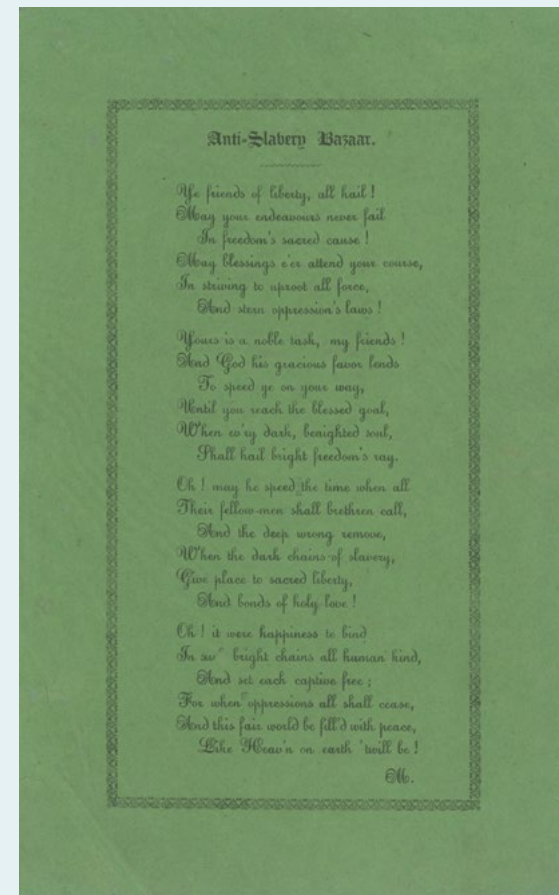 Anti-Slavery Bazaar.
Ye friends of liberty, all hail!
May your endeavours never fail
In freedom's sacred cause!
May blessings e'er attend your course,
In striving to uproot all force,
And stern oppression's laws!
Yours is a noble task, my friends!
And God his gracious favor lends
To speed ye on your way,
Until you reach the blessed goal,
When ev'ry dark, benighted soul,
Shall hail bright freedom's ray.
Oh! may he speed the time when all
Their fellow-men shall brethren call,
And the deep wrong remove,
When the dark chains of slavery,
Give place to sacred liberty,
And bonds of holy love!
Oh! it were happiness to bind
In bright chains all human kind,
And set each captive free;
For when oppressions all shall cease,
And this fair world be fill'd with peace,
Like Heav'n on earth 'twill be!
M.